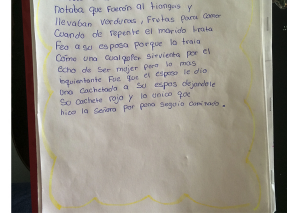 Notaba que Fueron al tianguis y
llevaban verduras, Frutas para comer
Cuando de repente el marido trata
Feo a su esposa porque la traia
Cómo una cualquier sirvienta por el
echo de ser mujer pero lo mas
inquientante Fue que el esposo le dio
una cachetada a su espos dejandole
So cachete rojo y lo único que
hizo la señora por pena seguio caminado.